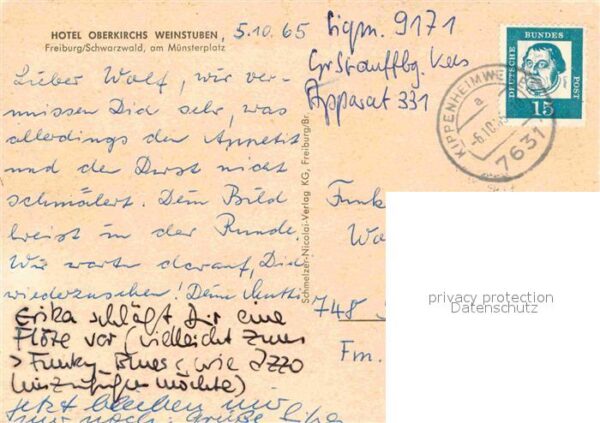 HOTEL OBERKIRCHS WEINSTUBEN,
Freiburg/Schwarzwald, am Münsterplatz
5.10.65
Lieber Wolf, wir ver-
missen Dich sehr, was
allerdings den Appetit
und den Durst nicht
schmälert. Dein Bild
kreist in der Runde.
Wir warten darauf, Dich
wiederzusehen! Deine Mutti
Erika schlägt Dir eine
Flöte vor (vielleicht zum
> Funky-Blues < wie Izzo
hinzufügen möchte)
Jetzt bleiben wir
nur noch: Grüße
Schmelzer-Nicolai-Verlag KG, Freiburg/Br.
Sigm. 9171
Gr Stauffbg. Kas
Apparat 331
DEUTSCHE BUNDES POST
15
KIPPENHEIMWEILER
a
-6.10.65
7631
Funk
748
Fm.
privacy protection
Datenschutz